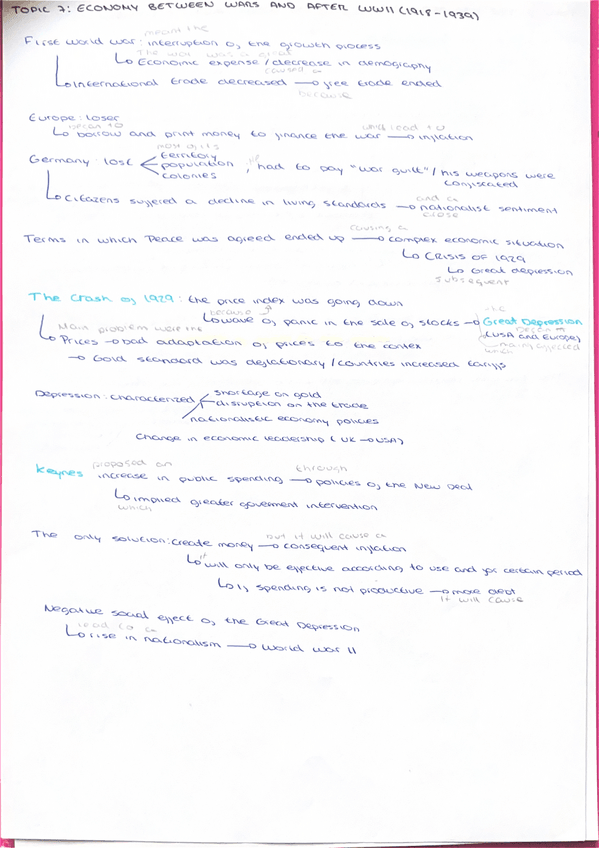 TOPIC 7: ECONOMY BETWEEN WARS AND AFTER WWII (1918-1939)
meant the
First world war: interruption of the growth process
The war was a great
Economic expense/decrease in demography
caused a
International trade decreased → free trade ended
because
Europe: loser
began to which lead to
borrow and print money to finance the war → inflation
most of its
Germany: lost territory
population, had to pay "war guilt"/his weapons were
colonies confiscated
and a
Citizens suffered a decline in living standards → nationalist sentiment
arose
causing a
Terms in which Peace was agreed ended up → complex economic situation
CRISIS OF 1929
Great depression
subsequent
The Crash of 1929: the price index was going down
because the
wave of panic in the sale of stocks → Great Depression
Main problem were the began
Prices → bad adaptation of prices to the contex (USA and Europe)
mainly affected
→ Gold standard was deflationary/countries increased tariffs which
Depression: characterized shortage on gold
disruption on the trade
nationalistic economy policies
Change in economic leadership (UK → USA)
proposed an through
Keynes increase in public spending → policies of the New Deal
implied greater goverment intervention
which
but it will cause a
The only solution: create money → consequent inflation
it
will only be effective according to use and for certain period
If spending is not productive → more debt
it will cause
Negative social effect of the Great Depression
lead to a
rise in nationalism → World War II